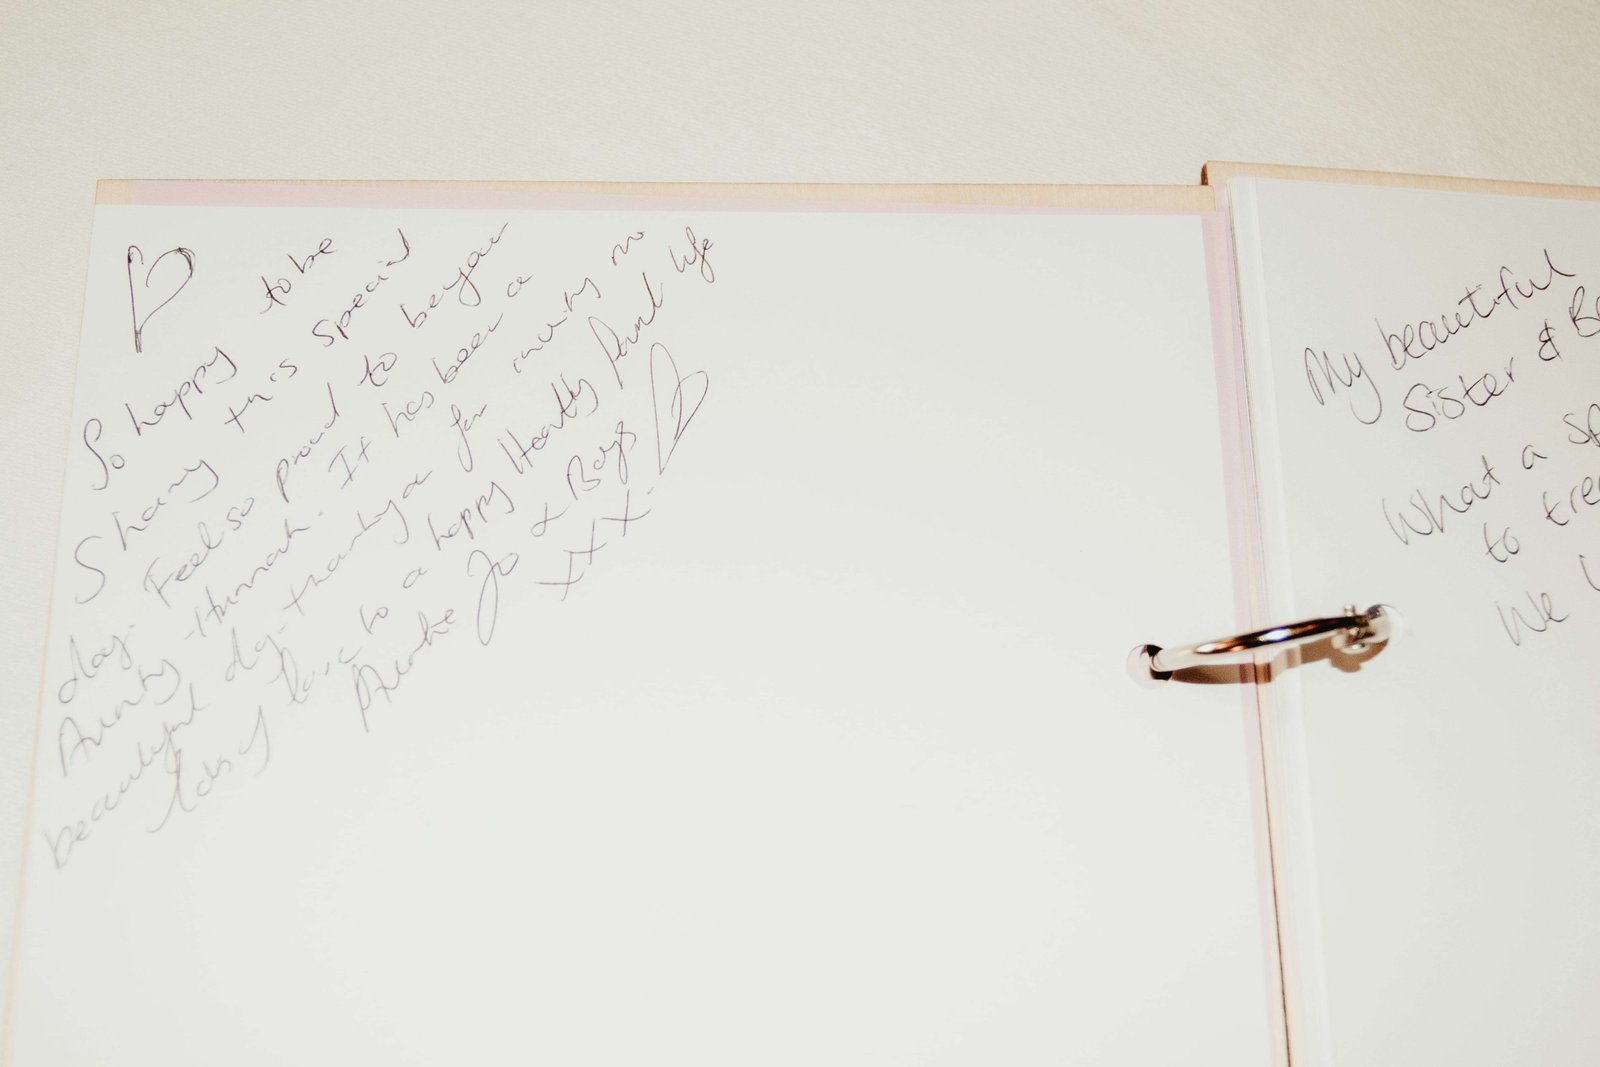 So happy to be
Sharing this special
day. Feel so proud to be your
Aunty Hannah. It has been a
beautiful day - thankyou for inviting me
lots of love to a happy Healthy family life
Auntie Jo & Boys
xxx.
My beautiful
Sister &
What a
to
We